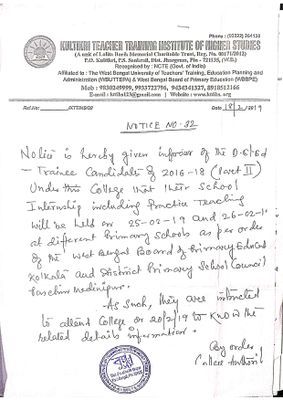 Phone : (03222) 264133
KULTIKRI TEACHER TRAINING INSTITUTE OF HIGHER STUDIES
(A unit of Lalita Bach Memorial Charitable Trust, Reg. No. 00171/2012)
P.O. Kultikri, P.S. Sankrail, Dist. Jhargram, Pin - 721135, (W.B.)
Recognised by : NCTE (Govt. of India)
Affiliated to : The West Bengal University of Teachers' Training, Education Planning and
Administration (WBUTTEPA) & West Bengal Board of Primary Education (WBBPE)
Mob : 9830249999, 9933723796, 9434341327, 8918512166
E-mail : 2@gmail.com Website : www.kttihs.org
Ref.No: KTTIHS/02 Date 18/2/2019
NOTICE NO-32
Notice is hereby given infavour of the D.El.Ed
- Trainee Candidates of 2016-18 (Part II)
Under this College that their School
Internship including Practice Teaching
will be held on 25-02-19 and 26-02-1
at different Primary Schools as per order
of the West Bengal Board of Primary Educat
Kolkata and District Primary School Council
Paschim Medinipur.
- As such, they are instructed
to attend College on 20/2/19 to know the
related details information.
By order
College Authorit